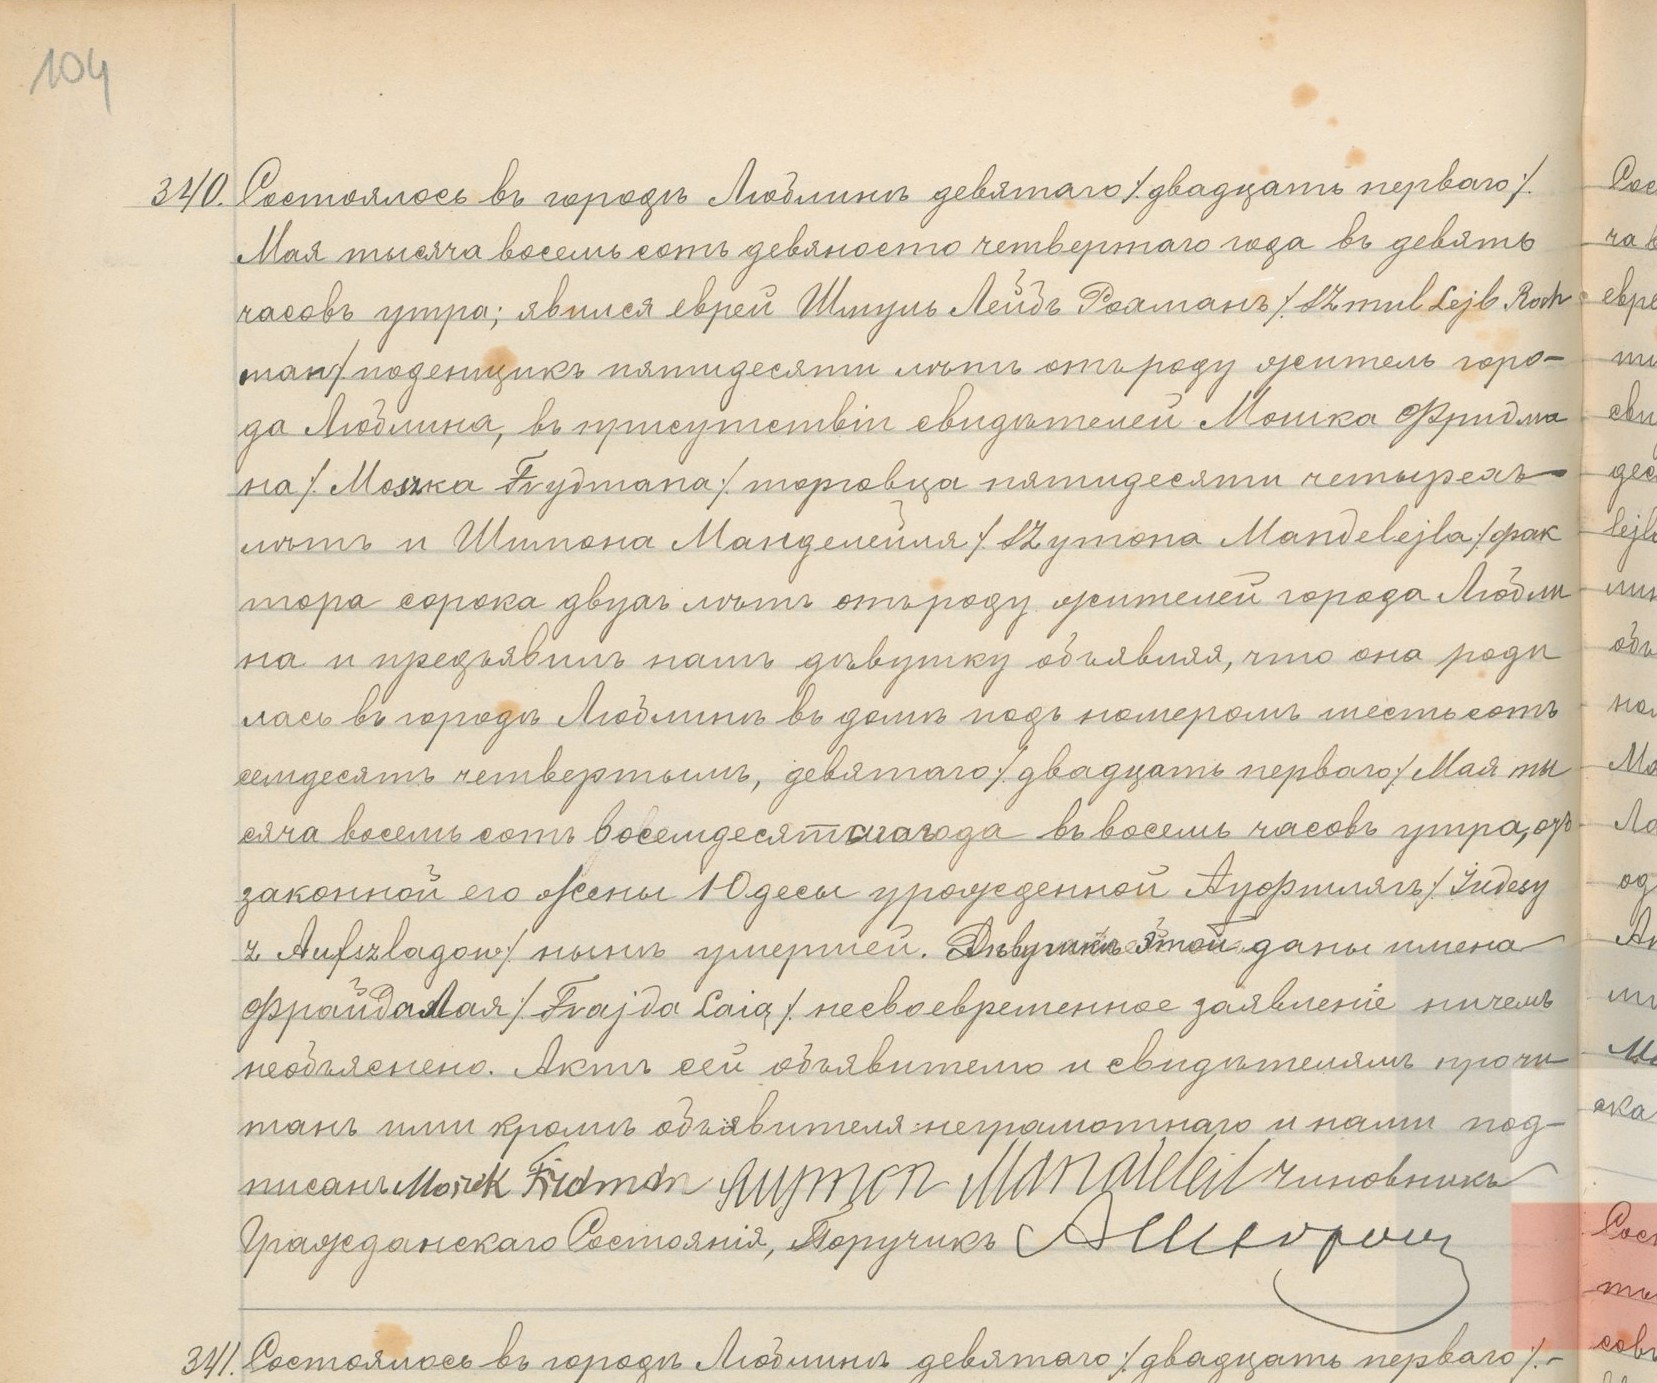 104
340. Состоялось въ городѣ Люблинѣ девятаго /: двадцать перваго :/
Мая тысяча восемь сотъ девяносто четвертаго года въ девять
часовъ утра; явился еврей Шмуль Лейбъ Рохманъ /: Szmul Lejb Roch
man /: поденщикъ пятидесяти лѣтъ отъ роду житель горо-
да Люблина, въ присутствіи свидѣтелей Мошка Фридма
на /: Moszka Frydmana :/ торговца пятидесяти четырехъ
лѣтъ и Шимона Манделейля /: Szymona Mandelejla :/ фак
тора сорока двухъ лѣтъ отъ роду жителей города Любли
на и предъявилъ намъ дѣвушку объявляя, что она роди
лась въ городѣ Люблинѣ въ домѣ подъ номеромъ шестьсотъ
семдесятъ четвертымъ, девятаго /: двадцать перваго :/ Мая ты
сяча восемь сотъ восемдесятаго года въ восемь часовъ утра, отъ
законной его жены Юдесы урожденной Ауфшлягъ /: Judesy
z Aufszlagow :/ нынѣ умершей. Дѣвушкѣ этой даны имена
Фрайда Лая /: Frajda Laia :/ несвоевременное заявленіе ничемъ
необъяснено. Актъ сей объявителю и свидѣтелямъ прочи
танъ ими кромѣ объявителя неграмотнаго и нами под-
писанъ Moszek Fridman Szymon Mandeleil Чиновникъ
Гражданскаго Состоянія, Поручикъ
341. Состоялось въ городѣ Люблинѣ девятаго /: двадцать перваго :/-